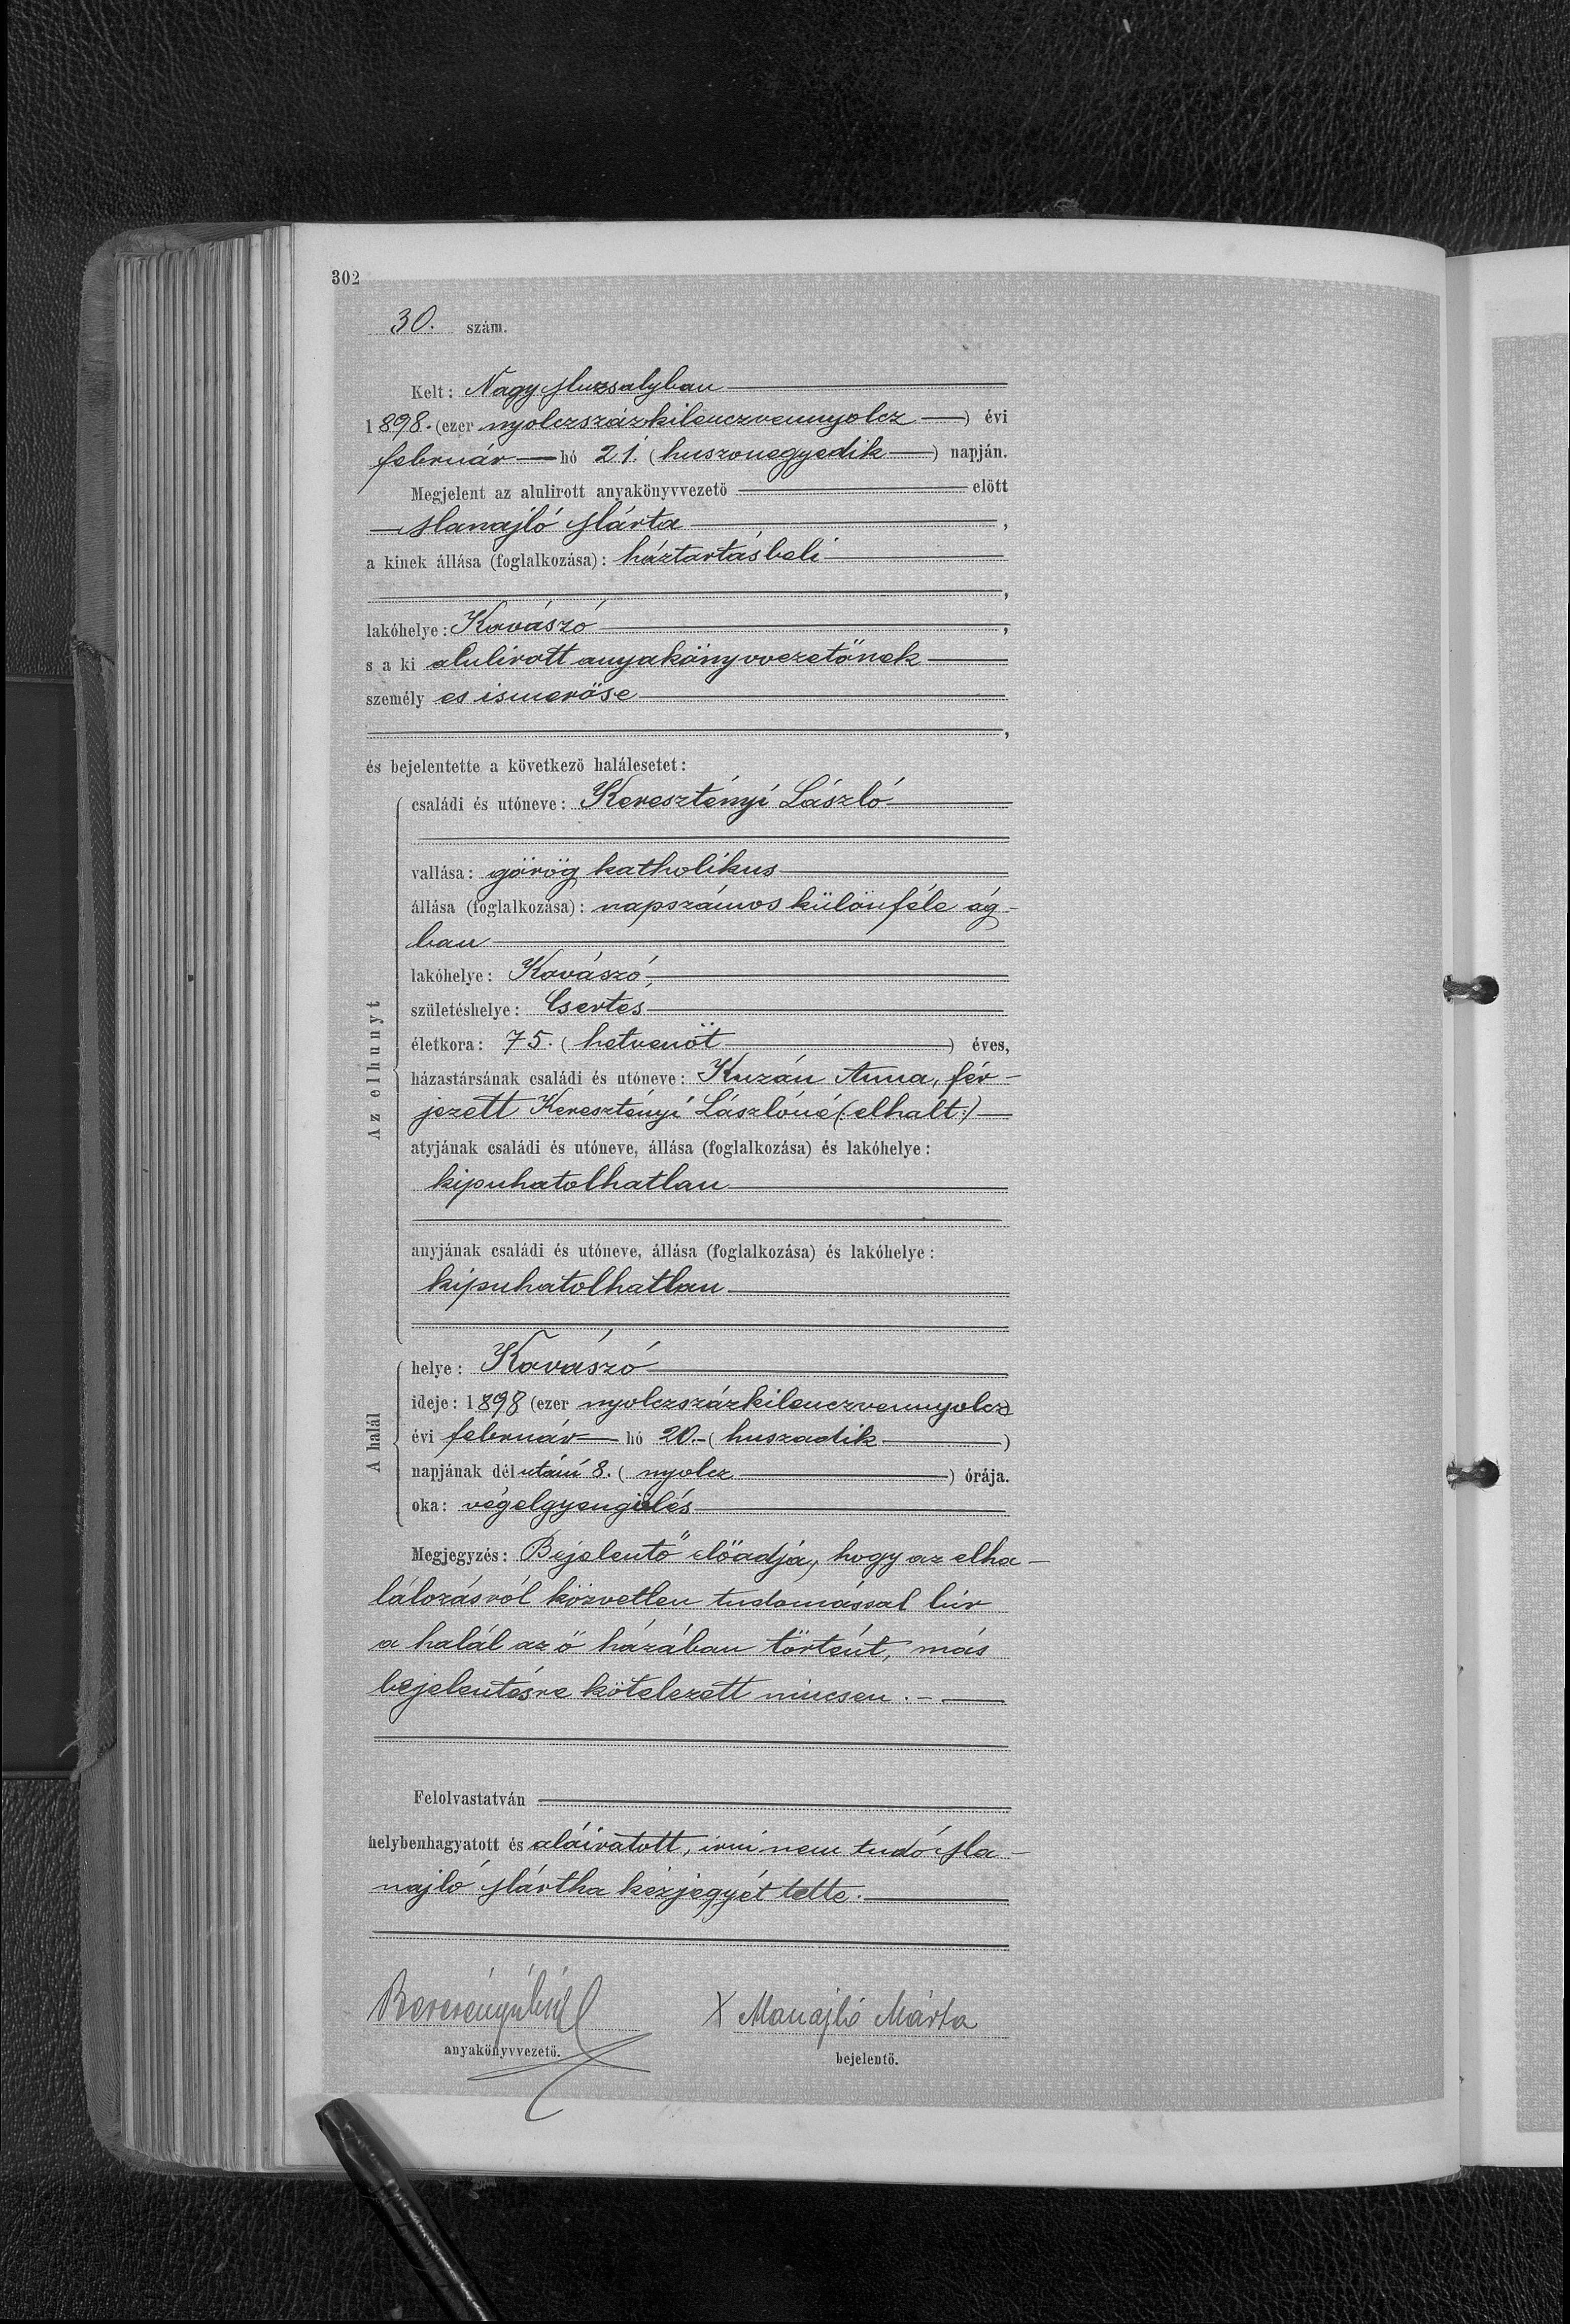 302
30. szám.
Kelt: Nagy Muzsalyban
1898. (ezer nyolczszázkilenczvennyolcz) évi
február hó 21. (huszonegyedik) napján.
Megjelent az alulirott anyakönyvvezető előtt
Manajló Márta,
a kinek állása (foglalkozása): háztartásbeli
,
lakóhelye: Kovászó,
s a ki alulirott anyakönyvvezetőnek
személyes ismerőse
,
és bejelentette a következő halálesetet:
Az elhunyt
családi és utóneve: Keresztényi László
vallása: görög katholikus
állása (foglalkozása): napszámos különféle ág-
ban
lakóhelye: Kovászó,
születéshelye: Csertés
életkora: 75. (hetvenöt) éves,
házastársának családi és utóneve: Kuzán Anna, fér-
jezett Keresztényi Lászlóné (:elhalt:)
atyjának családi és utóneve, állása (foglalkozása) és lakóhelye:
kipuhatolhatlan
anyjának családi és utóneve, állása (foglalkozása) és lakóhelye:
kipuhatolhatlan
A halál
helye: Kovászó
ideje: 1898 (ezer nyolczszázkilenczvennyolcz
évi február hó 20.- (huszadik)
napjának délutáni 8. (nyolcz) órája.
oka: végelgyengülés
Megjegyzés: Bejelentő előadja, hogy az elha-
lálozásról közvetlen tudomással bír
a halál az ő házában történt, más
bejelentésre kötelezett nincsen.-
Felolvastatván
helybenhagyatott és aláiratott, irni nem tudó Ma-
najló Mártha kézjegyét tette.
X Manajló Márta
anyakönyvvezető.
bejelentő.